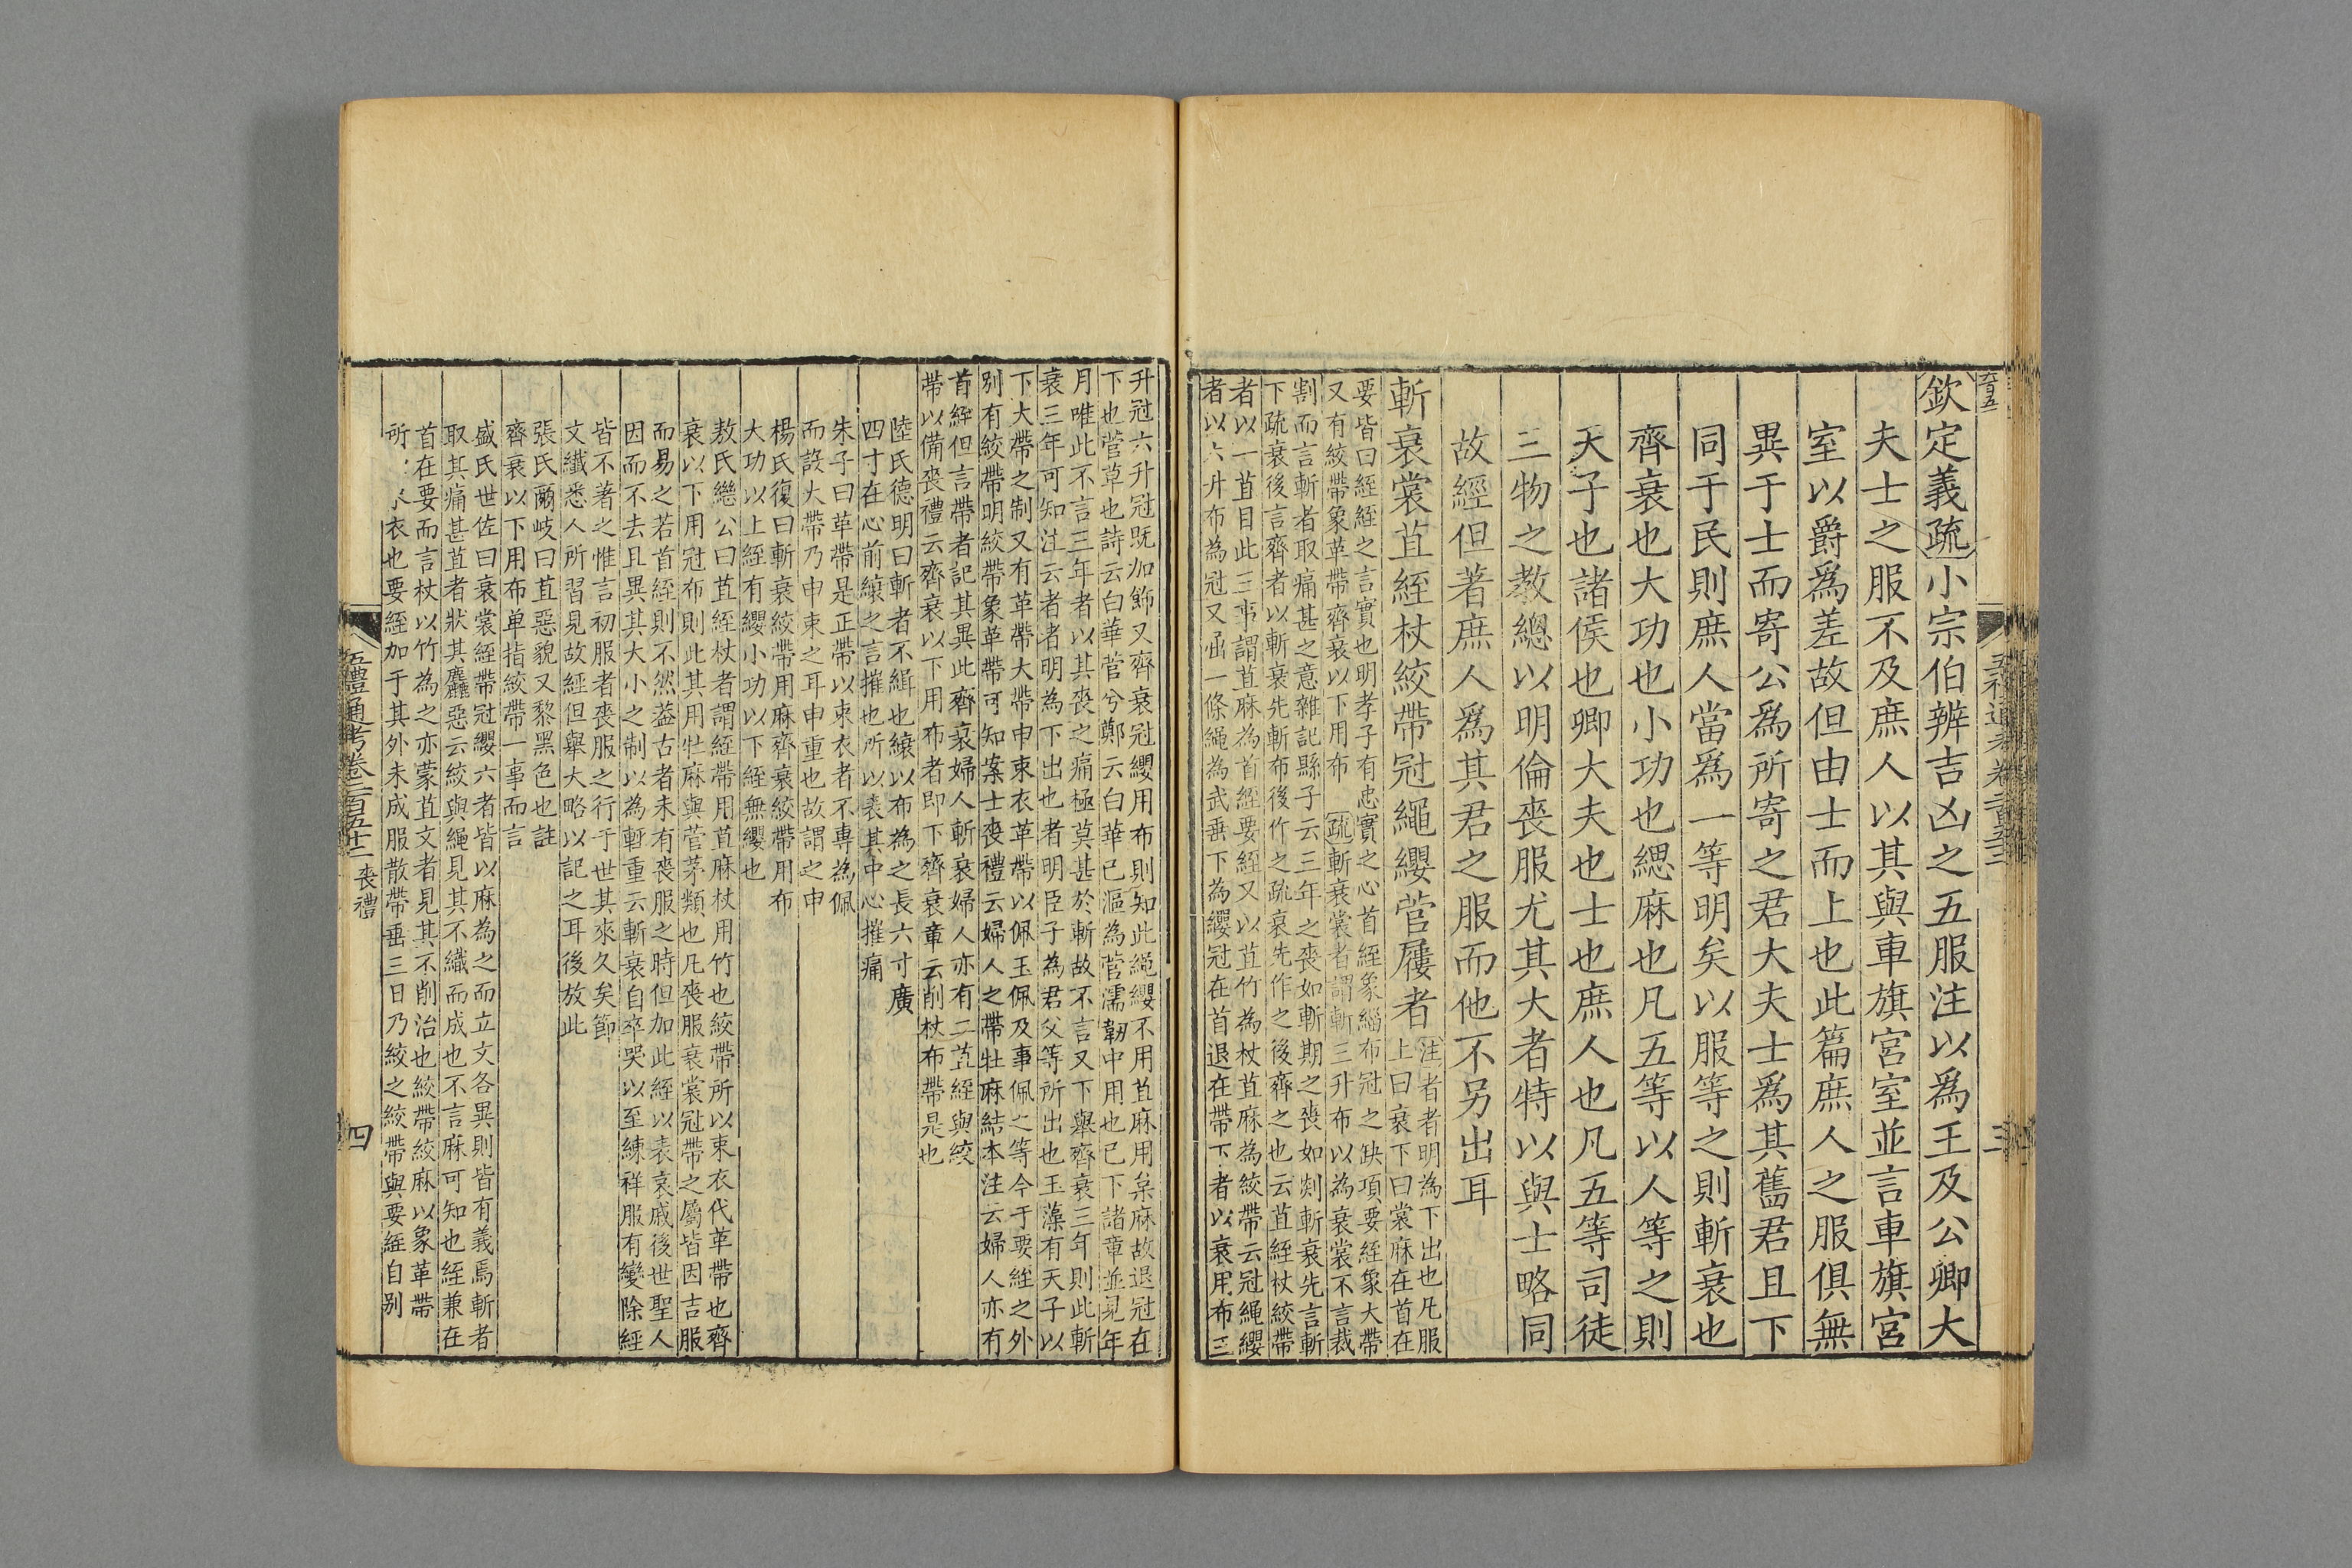 欽定義疏小宗伯辨吉凶之五服注以爲王及公卿大
夫士之服不及庶人以其與車旗宮室並言車旗宮
室以爵爲差故但由士而上也此篇庶人之服俱無
異于士而寄公爲所寄之君大夫士爲其舊君且下
同于民則庶人當爲一等明矣以服等之則斬衰也
齊衰也大功也小功也緦麻也凡五等以人等之則
天子也諸侯也卿大夫也士也庶人也凡五等司徒
三物之教總以明倫喪服尤其大者特以與士略同
故經但著庶人爲其君之服而他不另出耳
斬衰裳苴絰杖絞帶冠繩纓菅屨者
注者者明為下出也凡服
上曰衰下曰裳麻在首在
要皆曰絰絰之言實也明孝子有忠實之心首絰象緇布冠之缺項要絰象大帶
又有絞帶象革帶齊衰以下用布 疏斬衰裳者謂斬三升布以為衰裳不言裁
割而言斬者取痛甚之意雜記縣子云三年之喪如斬期之喪如剡斬衰先言斬
下疏衰後言齊者以斬衰先斬布後作之疏衰先作之後齊之也云苴絰杖絞帶
者以一苴目此三事謂苴麻為首絰要絰又以苴竹為杖苴麻為絞帶云冠繩纓
者以六升布為冠又屈一條繩為武垂下為纓冠在首退在帶下者以衰用布三
升冠六升冠既加飾又齊衰冠纓用布則知此繩纓不用苴麻用枲麻故退冠在
下也菅草也詩云白華菅兮鄭云白華已漚為菅濡韌中用也已下諸章並見年
月唯此不言三年者以其喪之痛極莫甚於斬故不言又下舉齊衰三年則此斬
衰三年可知注云者者明為下出也者明臣子為君父等所出也玉藻有天子以
下大帶之制又有革帶大帶申束衣革帶以佩玉佩及事佩之等今于要絰之外
別有絞帶明絞帶象革帶可知案士喪禮云婦人之帶牡麻結本注云婦人亦有
首絰但言帶者記其異此齊衰婦人斬衰婦人亦有二苴絰與絞
帶以備喪禮云齊衰以下用布者即下齊衰章云削杖布帶是也
陸氏德明曰斬者不緝也縗以布為之長六寸廣
四寸在心前縗之言摧也所以表其中心摧痛
朱子曰革帶是正帶以束衣者不專為佩
而設大帶乃申束之耳申重也故謂之申
楊氏復曰斬衰絞帶用麻齊衰絞帶用布
大功以上絰有纓小功以下絰無纓也
敖氏繼公曰苴絰杖者謂絰帶用苴麻杖用竹也絞帶所以束衣代革帶也齊
衰以下用冠布則此其用牡麻與菅茅類也凡喪服衰裳冠帶之屬皆因吉服
而易之若首絰則不然葢古者未有喪服之時但加此絰以表哀戚後世聖人
因而不去且異其大小之制以為輕重云斬衰自卒哭以至練祥服有變除經
皆不著之惟言初服者喪服之行于世其來久矣節
文纖悉人所習見故經但舉大略以記之耳後放此
張氏爾岐曰苴惡貌又黎黑色也註
齊衰以下用布单指絞帶一事而言
盛氏世佐曰衰裳絰帶冠纓六者皆以麻為之而立文各異則皆有義焉斬者
取其痛甚苴者狀其麤惡云絞與繩見其不織而成也不言麻可知也絰兼在
首在要而言杖以竹為之亦蒙苴文者見其不削治也絞帶絞麻以象革帶
所 衣也要絰加于其外未成服散帶垂三日乃絞之絞帶與要絰自別
五禮通考卷二百五十二 喪禮
四